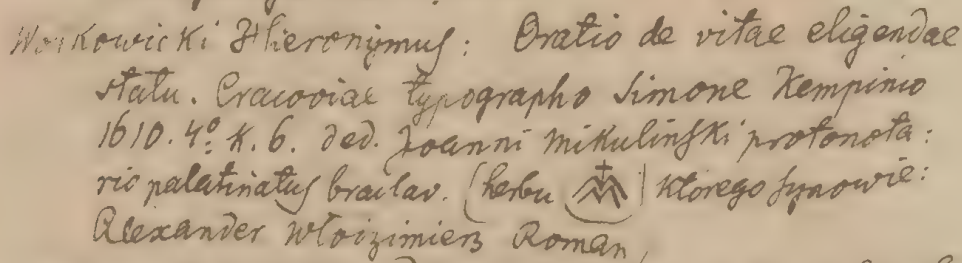 Workowicki Hieronymus: Oratio de vitae eligendae
statu. Cracoviae typographo Simone Kempinio
1610. 4º. k. 6. ded. Joanni Mikulinski protonota:
rio palatinatus braclav. (herbu) ktorego synowie:
Alexander Włoizimierz Roman,